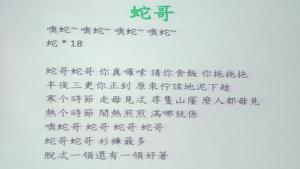 蛇哥
噢蛇~ 噢蛇~ 噢蛇~ 噢蛇~
蛇 * 18
蛇哥蛇哥 你真囉嗦 請你食飯 你拖拖拖
半夜三更你正到 原來佇該地泥下趖
寒个時節 走毋見忒 尋隻山窿麼人都毋見
熱个時節 鬧熱煎煎 滿哪就係
噢蛇哥 蛇哥 蛇哥 蛇哥
蛇哥蛇哥 衫褲最多
脫忒一領還有一領好著